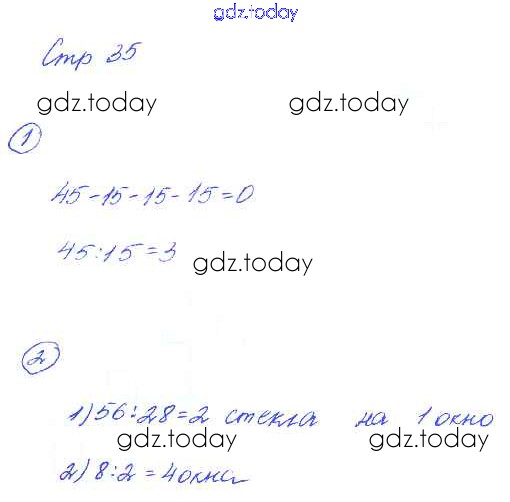 gdz.today
Стр 35
gdz.today gdz.today
1
45-15-15-15=0
45:15=3
gdz.today
2
1) 56:28=2 стекла на 1 окно
gdz.today gdz.today
2) 8:2=4 окна